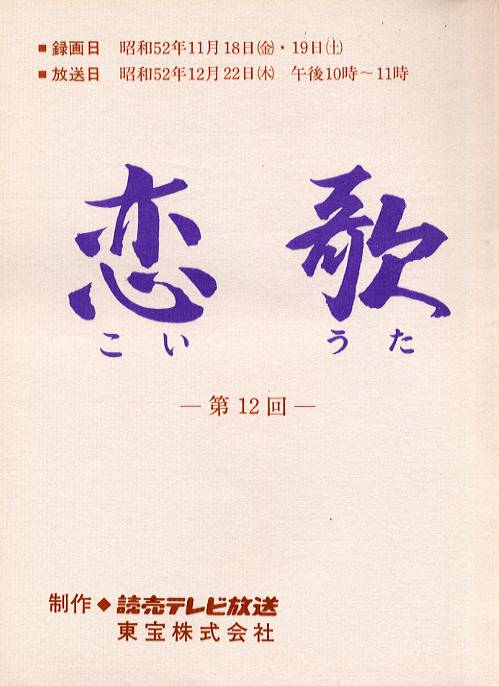 ■ 録画日 昭和52年11月18日㈮・19日㈯
■ 放送日 昭和52年12月22日㈭ 午後10時～11時
恋歌
こいうた
―第12回―
制作◆読売テレビ放送
東宝株式会社